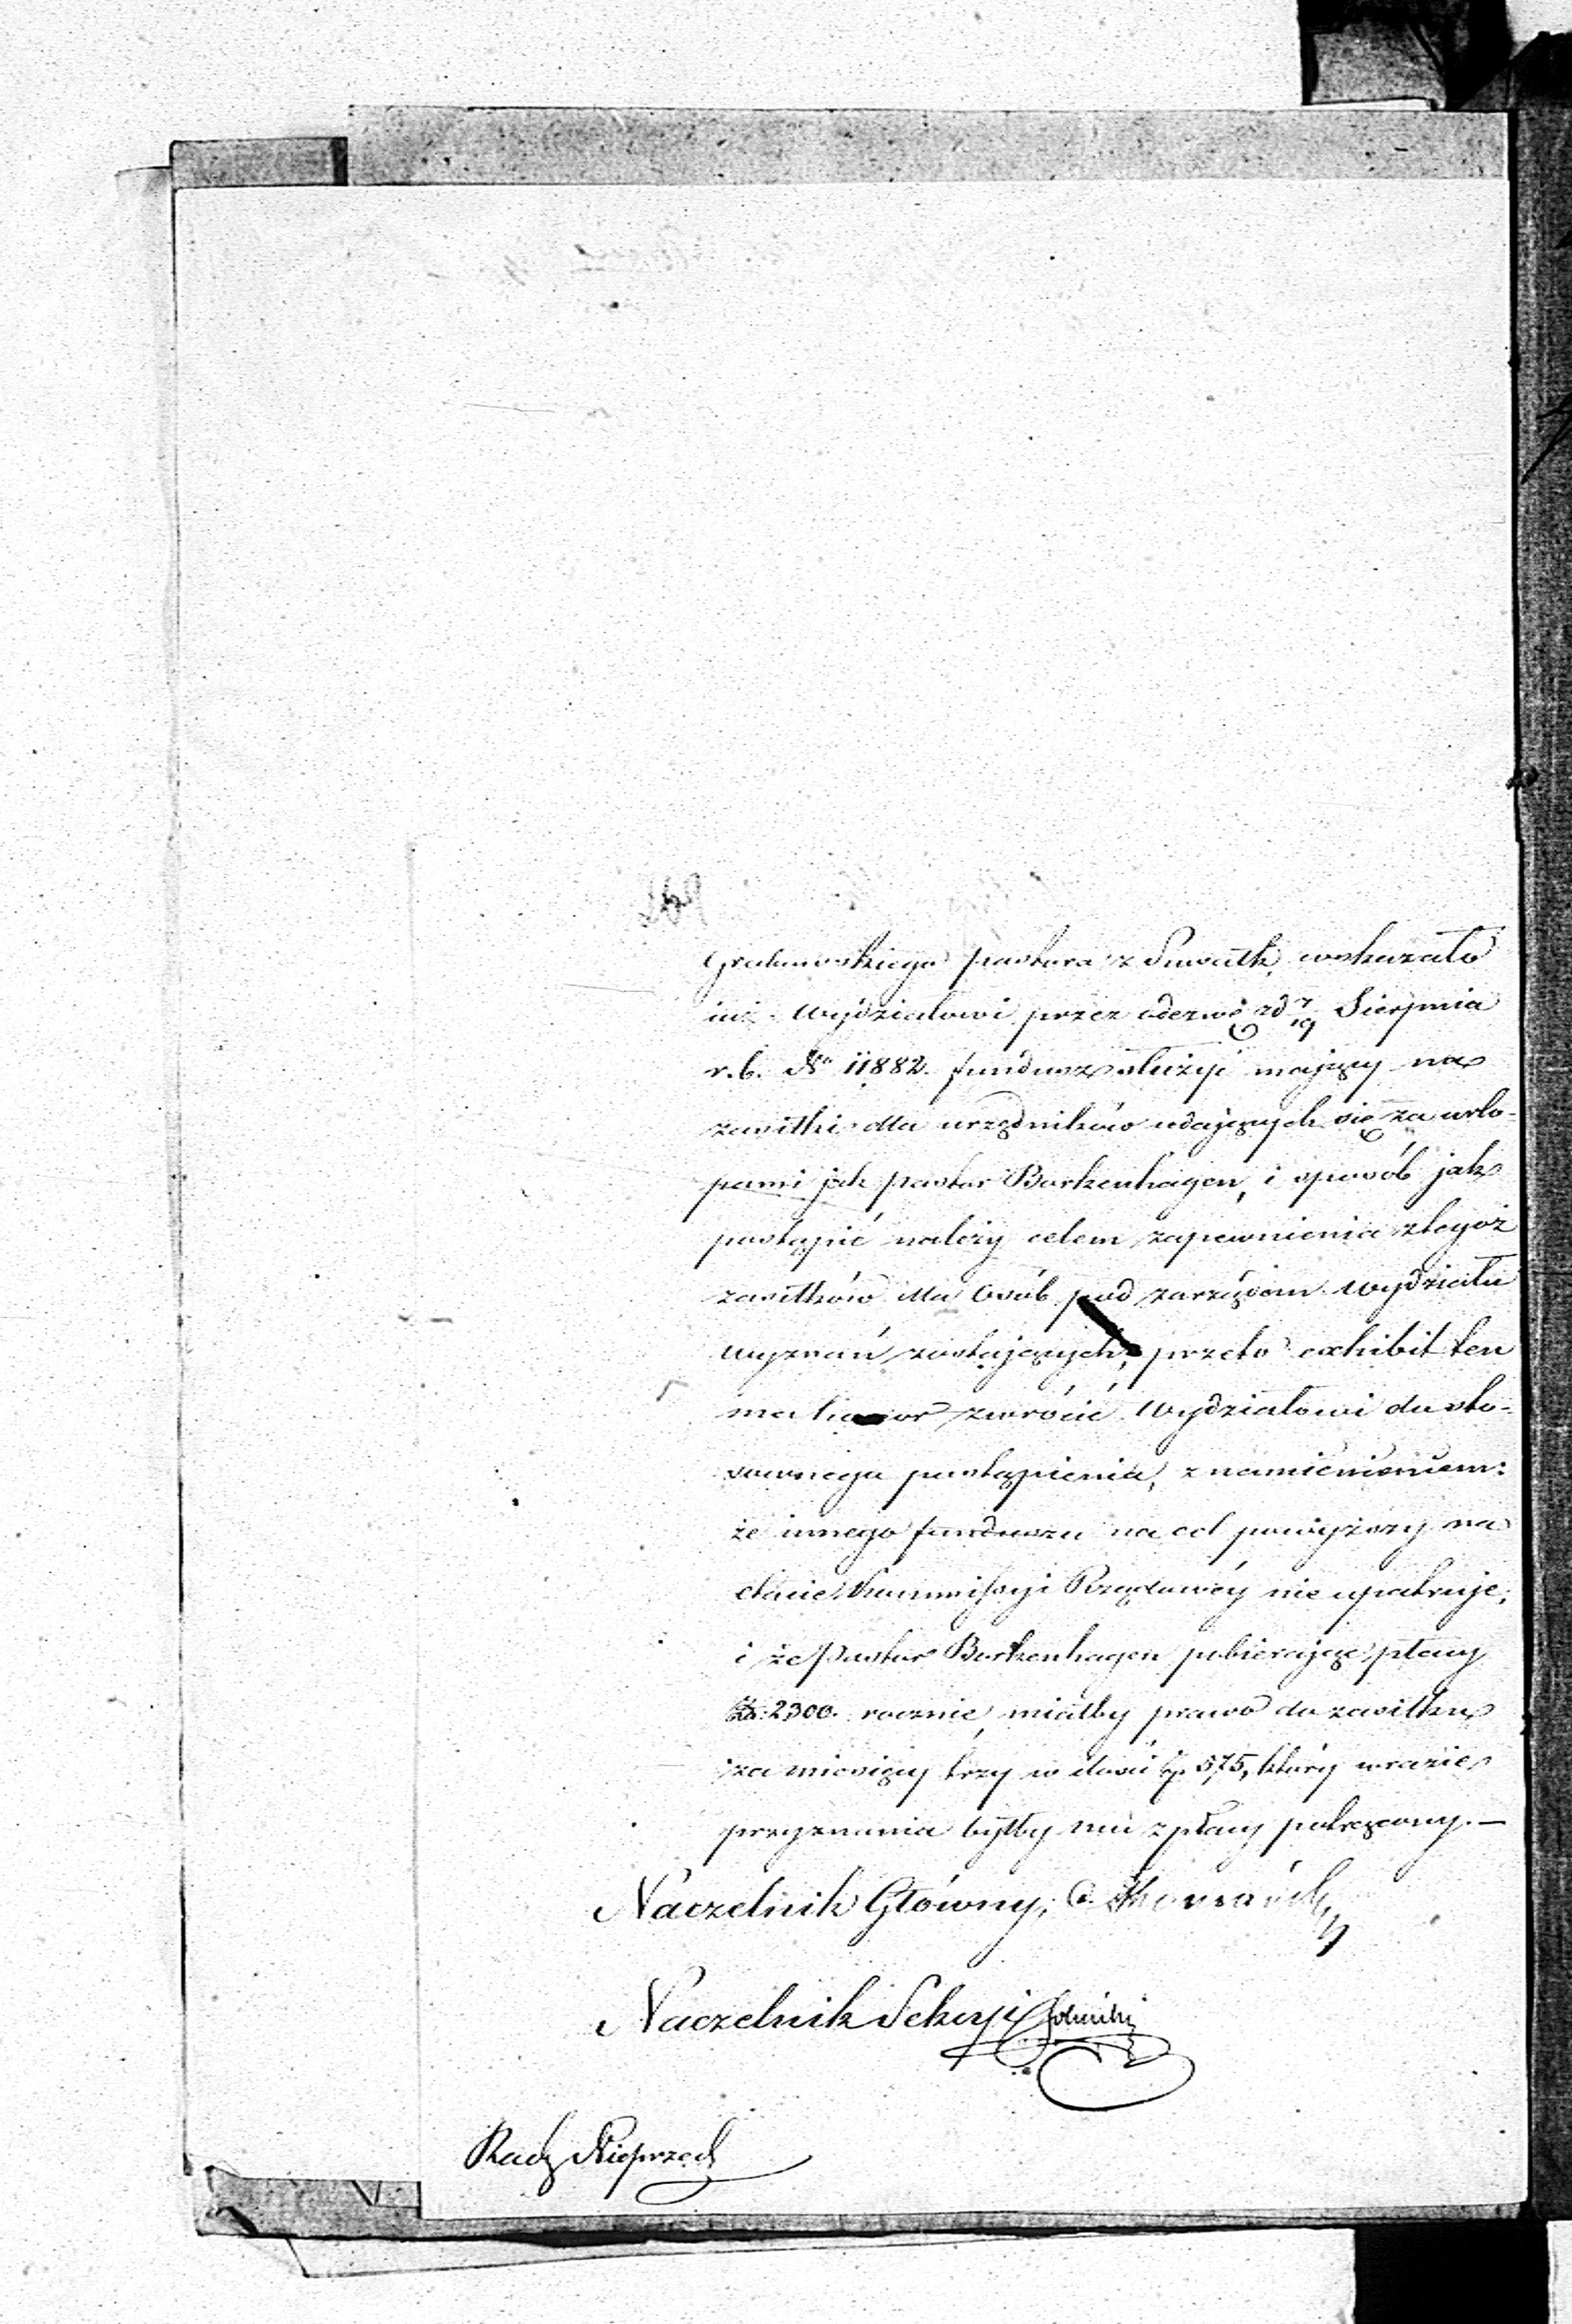 Grabowskiego pastora z Suwałk, wskazało
iuż Wydziałowi przez odezwę z d 7/19 Sierpnia
r. b. No 11882. fundusz służyć mający na
zasiłki dla urzędników udaiących się za urlo-
pami jak pastor Borkenhagen, i sposób jak
postąpić należy celem zapewnienia z tegoż
zasiłków dla osób pod zarządem Wydziału
Wyznań zostających, przeto exhibit ten
ma honor zwrócić Wydziałowi do sto-
sownego postąpienia, z namienieniem:
że innego funduszu na cel powyższy na
etacie Kommissyi Rządowéy nie upatruje,
i że Pastor Borkenhagen pobierając płacy
Zł. 2300. rocznie, miałby prawo do zasiłku
za miesięcy trzy w ilości zp. 575, który w razie
przyznania byłby mu z płacy potrącony. —
Naczelnik Główny,
Naczelnik Sekcyi
Radz Nieprzed